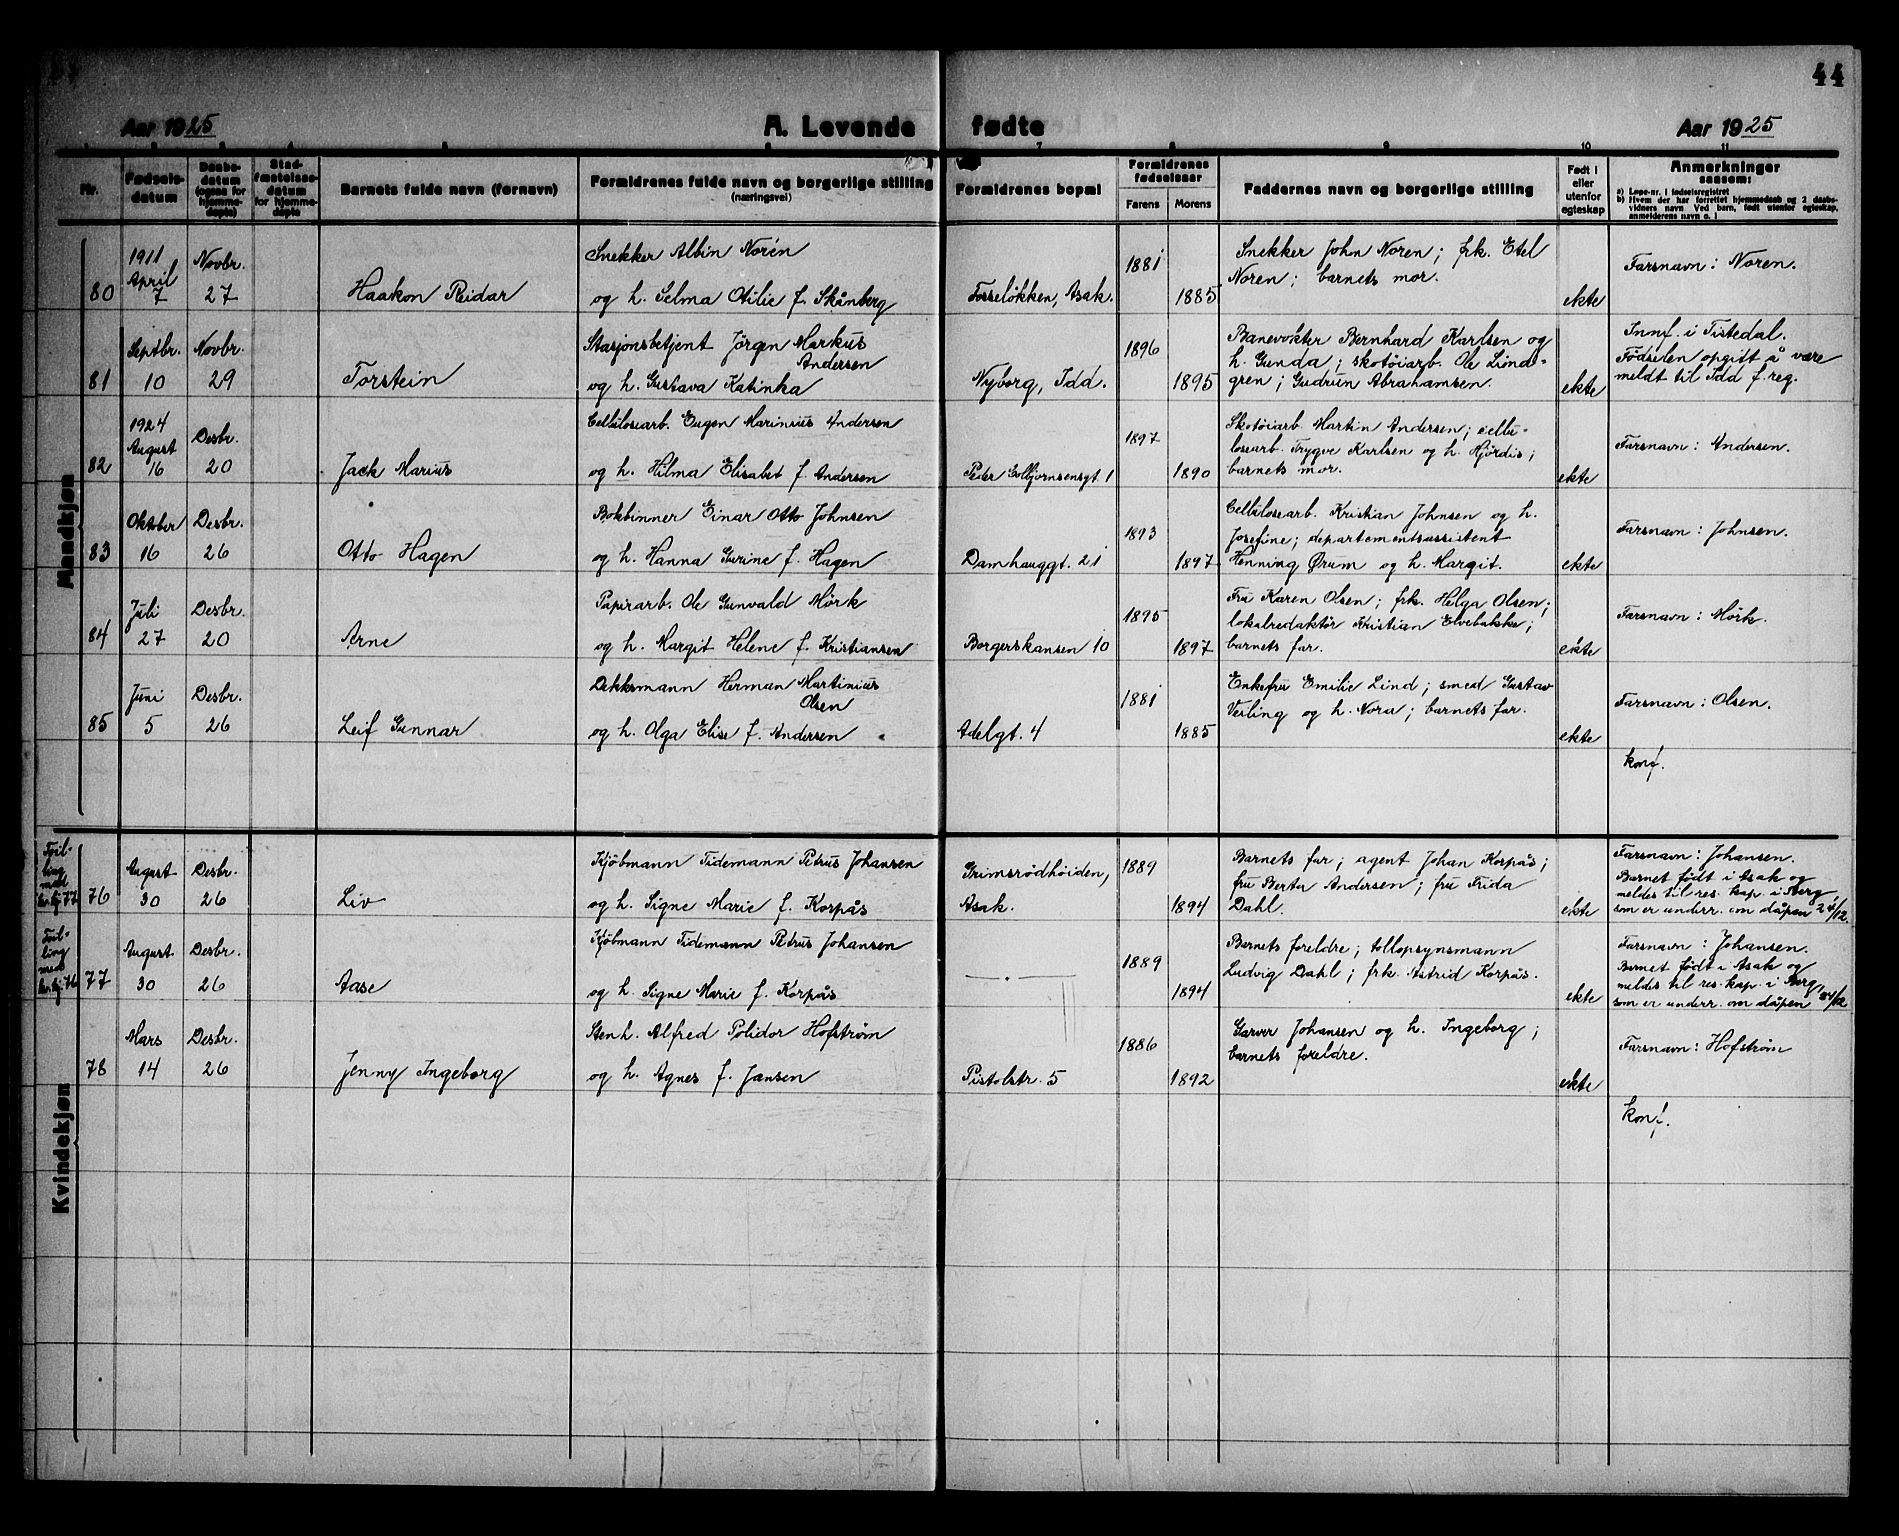 44
Aar 1925
A. Levende
fødte
Aar 1925
Nr.
Fødsels-
datum
Daabs-
datum
(ogsaa for
hjemme-
døpte)
Stad-
fæstelses-
datum
for hjemme-
døpte
Barnets fulde navn (fornavn)
Forældrenes fulde navn og borgerlige stilling
(næringsvei)
7
Forældrenes bopæl
8
Forældrenes
fødselsaar
Farens
Morens
9
Faddernes navn og borgerlige stilling
10
Født i
eller
utenfor
egteskap
11
Anmerkninger
saasom:
a) Løpe-nr. i fødselsregistret
b) Hvem der har forrettet hjemmedaab og 2 daabs-
vidners navn Ved barn, født utenfor egteskap,
anmelderens navn o. l
Mandkjøn
80
1911
April
7
Novbr.
27
Haakon Reidar
Snekker Albin Norén
og h. Selma Otilie f. Skånberg
Fosseløkken, Asak.
1881
1885
Snekker John Noren; frk. Etel
Noren; barnets mor.
ekte
Farsnavn: Noren.
81
Septbr.
10
Novbr.
29
Torstein
Stasjonsbetjent Jörgen Markus
Andersen
og h. Gustava Katinka
Nyborg, Idd.
1896
1895
Banevokter Bernhard Karlsen og
h. Gunda; skotöiarb. Ole Lind-
gren; Gudrun Abrahamsen.
ekte
Innf. i Tistedal.
Fødselen opgidt å være
meldt til Idd f. reg.
82
1924
August
16
Desbr.
20
Jack Marius
Cellulosearb. Eugen Marinius Andersen
og h. Hilma Elisabet f. Andersen
Peder Colbjørnsensgt. 1
1897
1890
Skotöiarb. Martin Andersen; cellu-
losearb. Trygve Karlsen og h. Hjördis;
barnets mor.
ekte
Farsnavn: Andersen.
83
Oktober
16
Desbr.
26
Otto Hagen
Bokbinner Einar Otto Johnsen
og h. Hanna Gurine f. Hagen
Damhauggt. 21
1893
1897
Cellulosearb. Kristian Johnsen og h.
Josefine; departementsassistent
Henning Ørum og h. Margit.
ekte
Farsnavn: Johnsen.
84
Juli
27
Desbr.
20
Arne
Papirarb. Ole Gunvald Mörk
og h. Margit Helene f. Kristiansen
Borgerskansen 10
1895
1897
Fru Karen Olsen; frk. Helga Olsen;
lokalredaktör Kristian Elvebakke;
barnets far.
ekte
Farsnavn: Mörk.
85
Juni
5
Desbr.
26
Leif Gunnar
Dekksmann Herman Martinius
Olsen
og h. Olga Elise f. Andersen
Adelgt. 4
1881
1885
Enkefru Emilie Lind; smed Gustav
Vesling og h. Nora; barnets far.
ekte
Farsnavn: Olsen.
konf.
Kvindekjøn
Tvil-
ling
med
77
76
August
30
Desbr.
26
Liv
Kjöbmann Tidemann Petrus Johansen
og h. Signe Marie f. Korpås
Grimsrödhöiden,
Asak.
1889
1894
Barnets far; agent Johan Korpås;
fru Berta Andersen; fru Frida
Dahl.
ekte
Farsnavn: Johansen.
Barnet født i Asak og
meldes til res. kap. i Berg,
som er underr. om dåpen 24/12.
Tvil-
ling
med
76
77
August
30
Desbr.
26
Aase
Kjöbmann Tidemann Petrus Johansen
og h. Signe Marie f. Korpås
1889
1894
Barnets foreldre; tollopsynsmann
Ludvig Dahl; frk. Astrid Korpås.
ekte
Farsnavn: Johansen.
Barnet født i Asak og
meldes til res. kap. i Berg,
som er underr. om dåpen 24/12
78
Mars
14
Desbr.
26
Jenny Ingeborg
Stenh. Alfred Polidor Hofstrøm
og h. Agnes f. Jansen
Pistolstr. 5
1886
1892
Garver Johansen og h. Ingeborg;
barnets foreldre.
ekte
Farsnavn: Hofstrøm
konf.